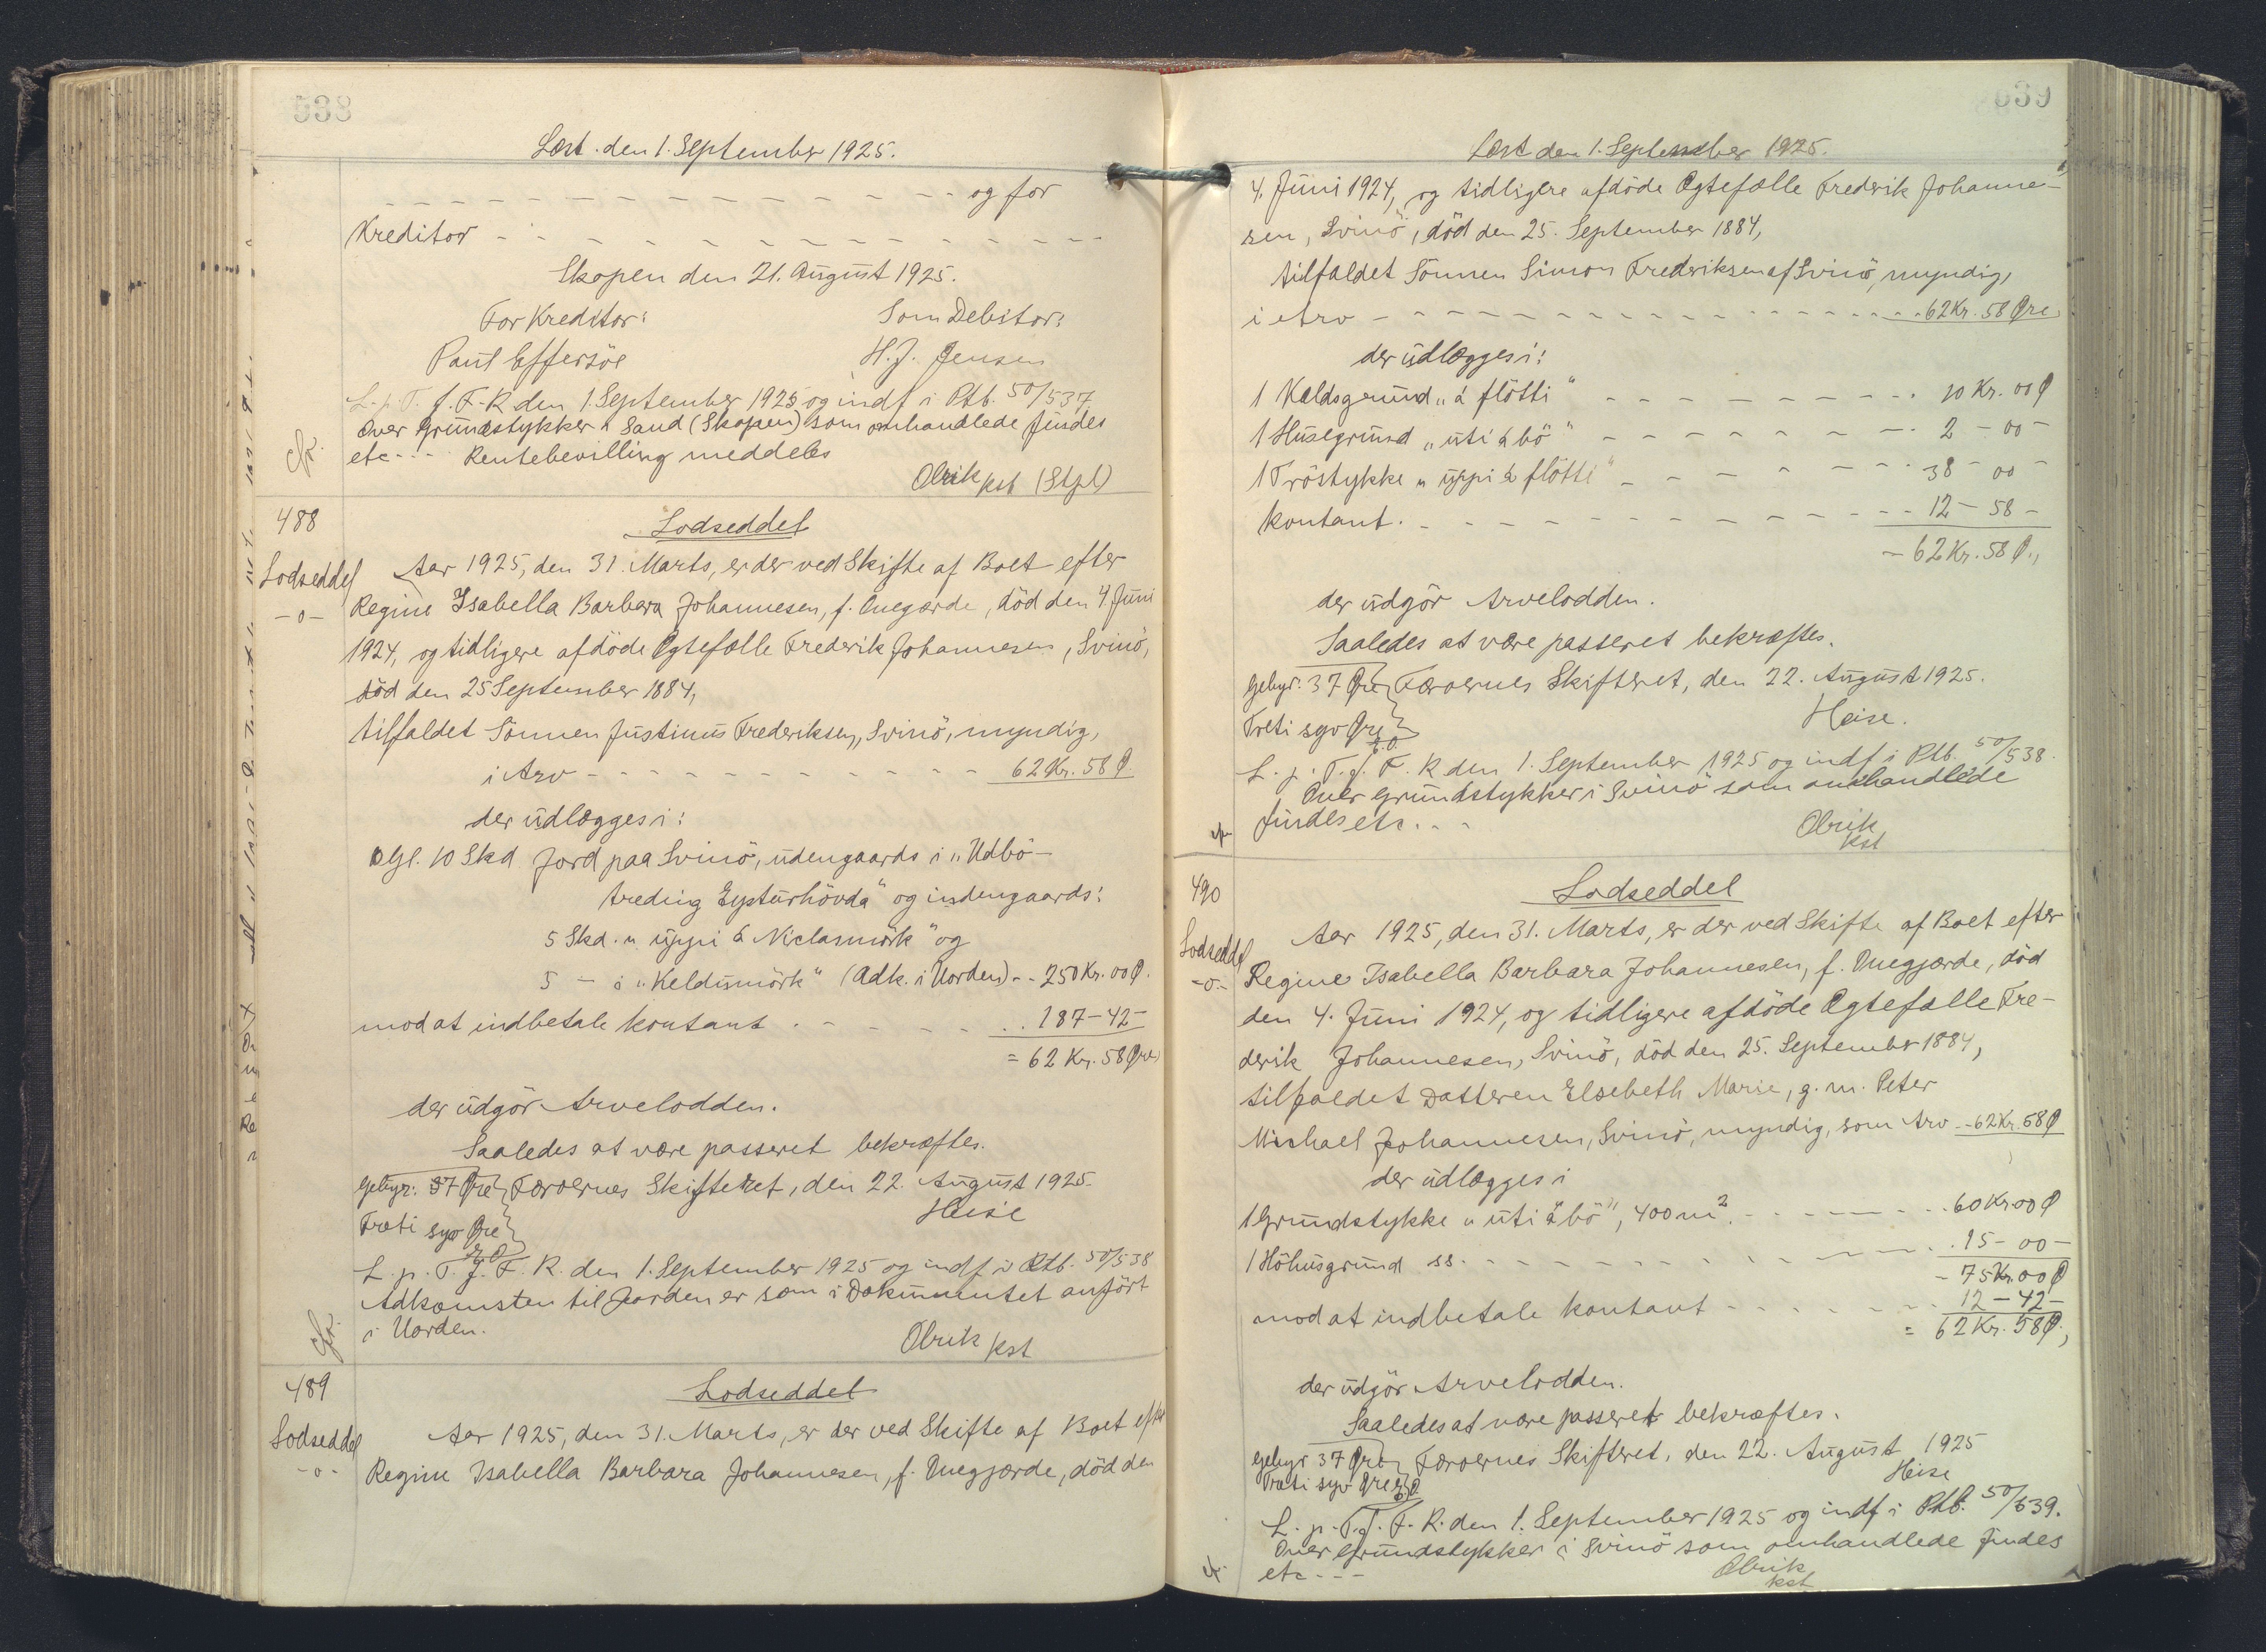 538
Læst den 1. September 1925.
og for
Kreditor
Skopen den 21. August 1925.
For Kreditor: Som Debitor:
Paul Effersöe H. J. Jensen
L. p. T. f. F. R den 1. September 1925 og indf i Ptb. 50/537
Over Grundstykker i Sand (Skopen) som omhandlede findes
etc... Rentebevilling meddeles
Olrik kst (Stpl)
488
Lodseddel
Lodseddel
-o-
Aar 1925, den 31. Marts, er der ved Skifte af Boet efter
Regine Isabella Barbara Johannesen, f. , död den 4 Juni
1924, og tidligere afdöde Ægtefælle Frederik Johannesen, Svinö,
död den 25 September 1884,
tilfaldet Sönnen Justinus Frederiksen, Svinö, myndig,
i Arv - 62 Kr. 58 Ø
der udlægges i:
Gl. 10 Skd Jord paa Svinö, udengaards i „Udbö-
treding Eysturhövda" og indengaards:
5 Skd. „ uppi á Niclasmörk" og
5 - i „Keldumörk" (Adk. i Uorden) - - 250 Kr. 00 Ø.
mod at indbetale kontant . . 187 - 42 -
= 62 Kr. 58 Øre,
der udgör Arvelodden.
Saaledes at være passeret bekræftes.
Gebyr: 37 Øre Færøernes Skifteret, den 22. August 1925.
Træti syv Øre Heise
L. p. T. f. F. R. den 1. September 1925 og indf i Ptb. 50/538
Adkomsten til Jorden er som i Dokumentet anfört
i Uorden.
Olrik kst
489
Lodseddel
Lodseddel
-o-
Aar 1925, den 31. Marts, er der ved Skifte af Boet efter
Regine Isabella Barbara Johannesen, f. , död den
539
Læst den 1. September 1925.
4. Juni 1924, og tidligere afdöde Ægtefælle Frederik Johanne-
sen, Svinö, död den 25. September 1884,
tilfaldet Sönnen Simon Frederiksen af Svinö, myndig,
i Arv - 62 Kr. 58 Øre
der udlægges i:
1 Kaldsgrund „á flötti" - 10 Kr. 00 Ø
1 Husegrund „úti á bö" - 2 - 00 -
1 Tröstykke „ uppi á flötti" - 38 - 00 -
kontant. - 12 - 58 -
- 62 Kr. 58 Ø.,
der udgör Arvelodden.
Saaledes at være passeret bekræftes.
Gebyr. 37 Øre Færøernes Skifteret, den 22. August 1925.
Treti syv Øre Heise.
L. p. T. f. F. R den 1. September 1925 og indf i Ptb. 50/538.
Over Grundstykker i Svinö som omhandlede
findes etc. . .
Olrik
kst
490
Lodseddel
Lodseddel
-o-
Aar 1925, den 31. Marts, er der ved Skifte af Boet efter
Regine Isabella Barbara Johannesen, f. , död
den 4. Juni 1924, og tidligere afdöde Ægtefælle Fre-
derik Johannesen, Svinö, död den 25. September 1884,
tilfaldet Datteren Elsebeth Marie, g. m. Peter
Michael Johannesen, Svinö, myndig, som Arv - - 62 Kr. 58 Ø
der udlægges i
1 Grundstykke „ úti á bö", 400 m². - 60 Kr 00 Ø
1 Höhusgrund ss. - 15 - 00 -
- 75 Kr. 00 Ø
mod at indbetale kontant - 12 - 42 -
= 62 Kr. 58 Ø.,
der udgör Arvelodden.
Saaledes at være passeret bekræftes.
Gebyr 37 Øre Færøernes Skifteret, den 22. August 1925
Træti syv Øre Heise
L. p. T. f. F. R. den 1. September 1925 og indf i Ptb. 50/539.
Over Grundstykker i Svinö som omhandlede findes
etc - - -
Olrik
kst